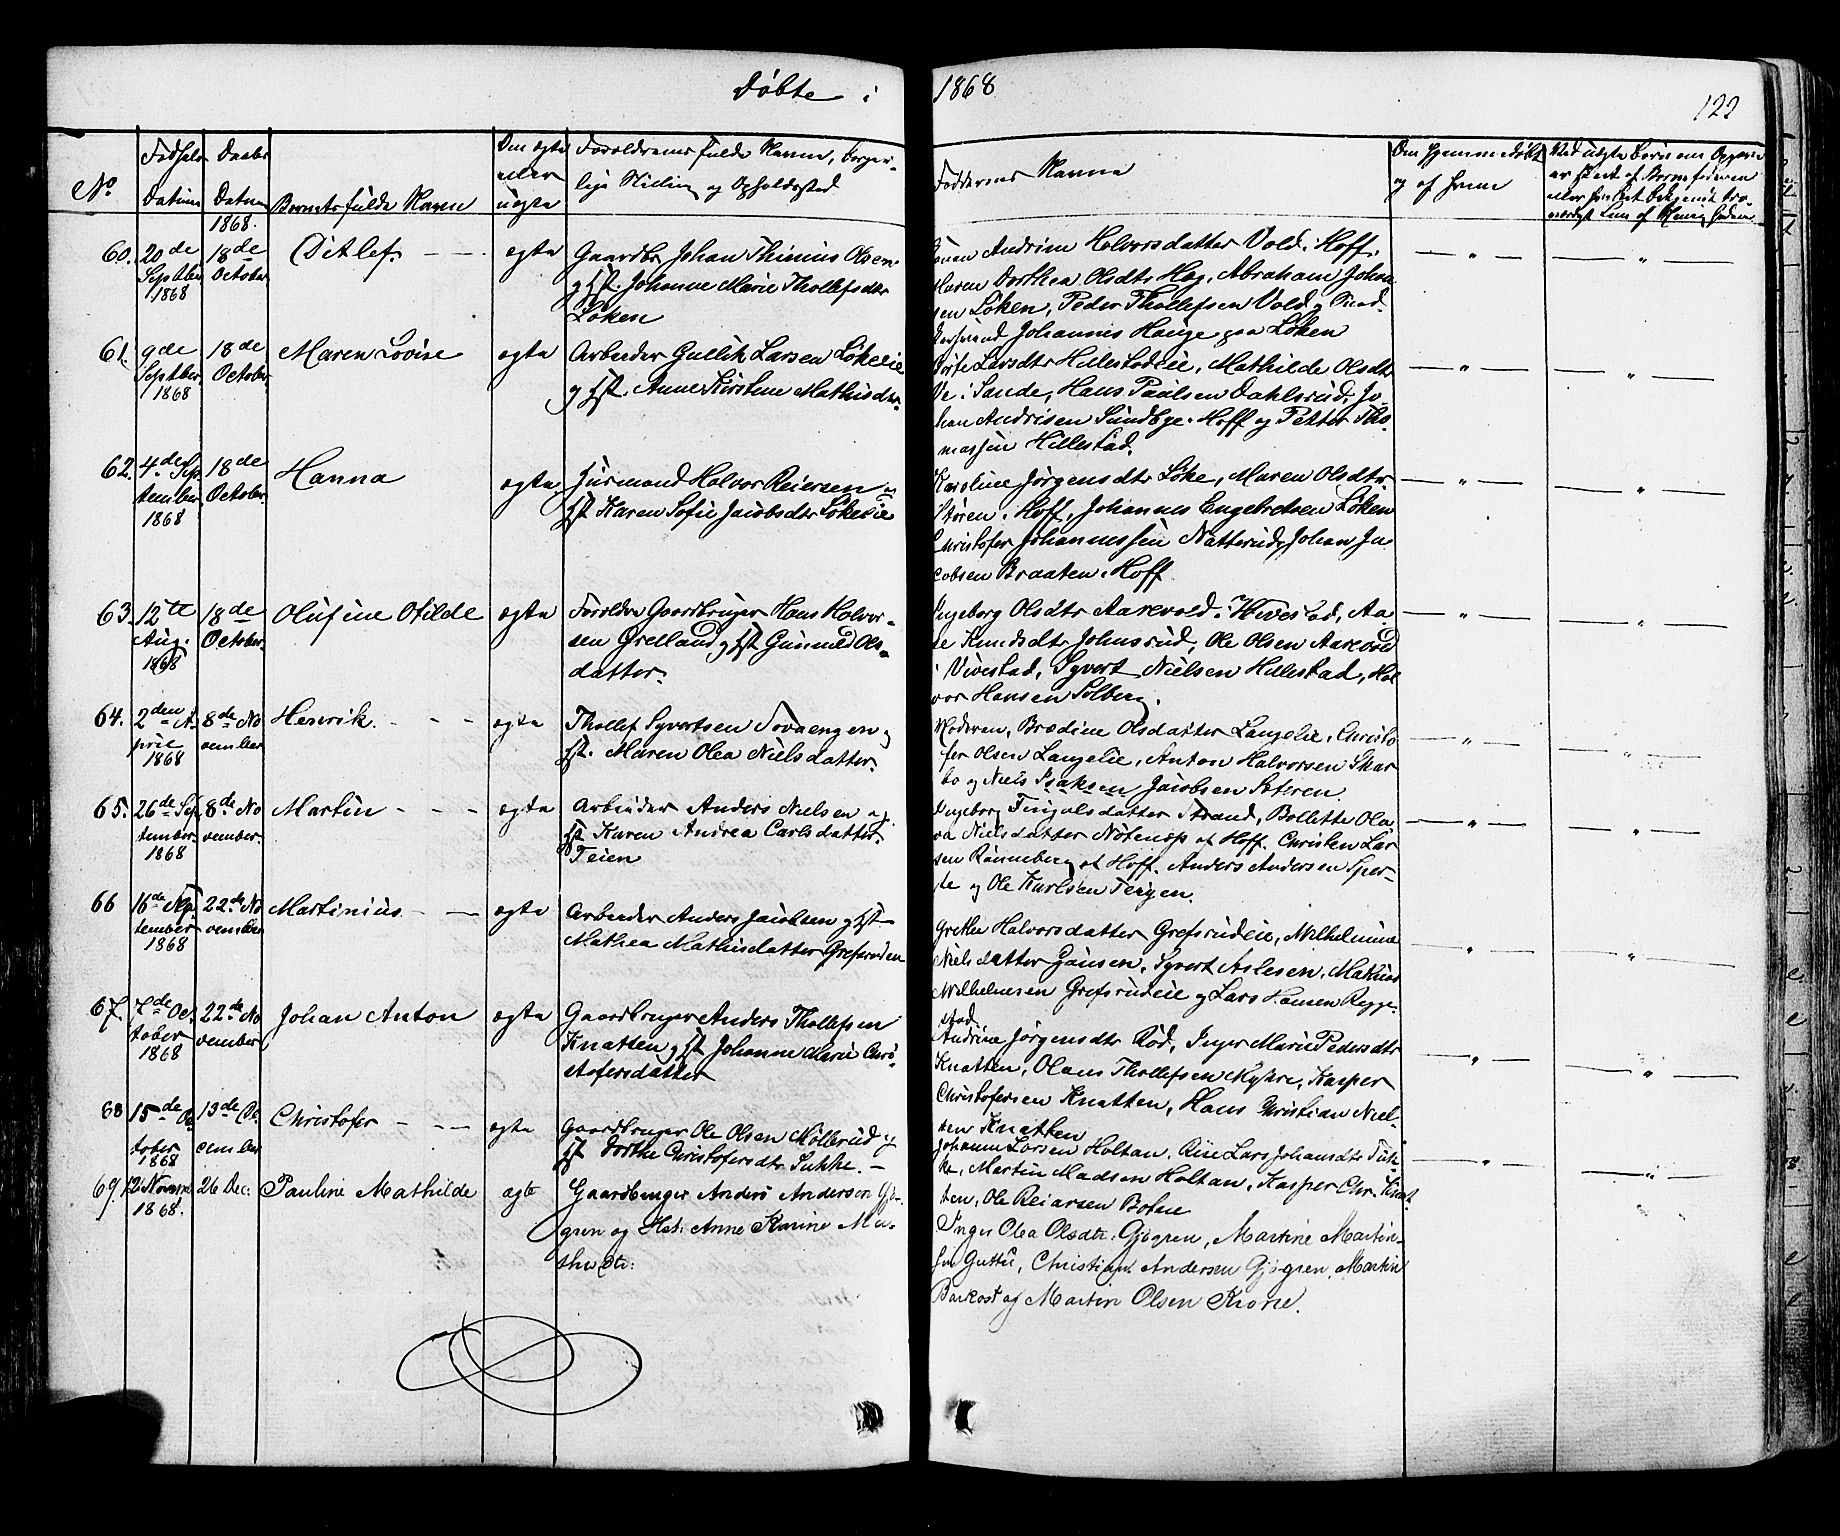 Döbte i 1868
122
No
Fødsels Datum
Daabs Datum
Barnets fulde Navn
Om ægte eller uægte
Forældrenes fulde Navne, borgerlige Stilling og Opholdssted
Faddernes Navne
Om hjemmedøbt og af hvem
1868.
60.
20de Septber 1868
18de October
Ditlef.
ægte
Gaardbr Johan Thinius Olsen
og Hst. Johanne Marie Thollefsdtr
Løken
Andrine Halvorsdatter Vold i Hoff,
Maren Dorthea Olsdtr Hag, Abraham Johan
sen Løken, Peder Thollefsen Vold og
Johannes Hauge paa Løken
61.
9de Septber 1868
18de October
Maren Lovise
ægte
Arbeider Gullik Larsen Løkeeie
og Hst. Anne Kirstine Mathisdtr.
Larsdtr Hillestadeie, Mathilde Olsdtr
Ve i Sande, Hans Paulsen Dahlsrud, Jo-
han Andrisen Sundbye i Hoff og Petter Tho-
massen Hillestad.
62.
4de September 1868
18de October
Hanna
ægte
Huusmand Halvor Reiersen og
Hst Karen Sofie Jacobsdtr Løkeeie
Karoline Jørgensdtr Løke, Maren Olsdtr
Støren i Hoff, Johannes Engebretsen Løken
Christofer Johannessen Natterud, Johan Ja-
cobsen Braaten i Hoff
63.
12te Aug. 1868
18de October
Olufine Otilde
ægte
Forældre Gaardbruger Hans Halvor-
sen Grelland og Hst Gunnild Ols-
datter.
Ingeborg Olsdtr Aarevold i Vivestad, Aa-
se Knudsdtr Johnsrud, Ole Olsen Aarevold
i Vivestad, Syvert Nielsen Hillestad, Hal
vor Hansen Solberg.
64.
2den April 1868
8de November
Henrik.
ægte
Thollef Syvertsen Sovaengen og
Hst. Maren Olea Nielsdatter.
Moderen, Brædine Olsdatter Langelie, Christo
fer Olsen Langelie, Anton Halvorsen Skar
bo og Niels Isaksen Jacobsen Seteren
65.
26de September 1868
8de November
Martin
ægte
Arbeider Anders Nielsen og
Hst Karen Andrea Carlsdatter
Teien
Ingeborg Fingalsdatter Strand, Bollette Ola
va Nielsdatter Nøtensø af Hoff. Christen Lar
sen Rønneberg af Hoff. Anders Andersen Sper-
te og Ole Karlsen Teigen.
66
16de September 1868
22de November
Martinius.
ægte
Arbeider Anders Jacobsen og Hst
Mathea Mathisdatter Grefsruden
Grethe Halvorsdatter Grefsrudeie, Wilhelmine
Nielsdatter Gausen, Syvert Aslesen, Mathias
Wilhelmsen Grefsrudeie og Lars Hansen Regge-
stad
67.
7de October 1868
22de November
Johan Anton
ægte
Gaardbruger Anders Thollefsen
Knatten og Hst Johanne Marie Chri
stofersdatter
Andrine Jørgensdtr Rød, Inger Marie Pedersdtr
Knatten, Olaus Thollefsen Myhre, Kasper
Christofersen Knatten, Hans Christian Niel-
sen Knatten
68
15de October 1868
13de December
Christofer
ægte
Gaardbruger Ole Olsen Møllerud og
Hst Dorthe Christofersdtr Sukke.
Johanne Larsen Holtan, Larsdtr Suk-
ke, Martin Madsen Holtan, Kasper Chr. Knat
ten, Ole Reiarsen Bohne
69.
12 Novem 1868.
26 Dec:
Pauline Mathilde
ægte
Gaardbruger Anders Andersen Gjø-
gren og Hst: Anne Karine Ma-
thiasdtr:
Inger Olea Olsdtr. Gjøgren, Martine Martin-
sen Guttu, Christian Andersen Gjøgren, Martin
Barkost og Martin Olsen Krone.